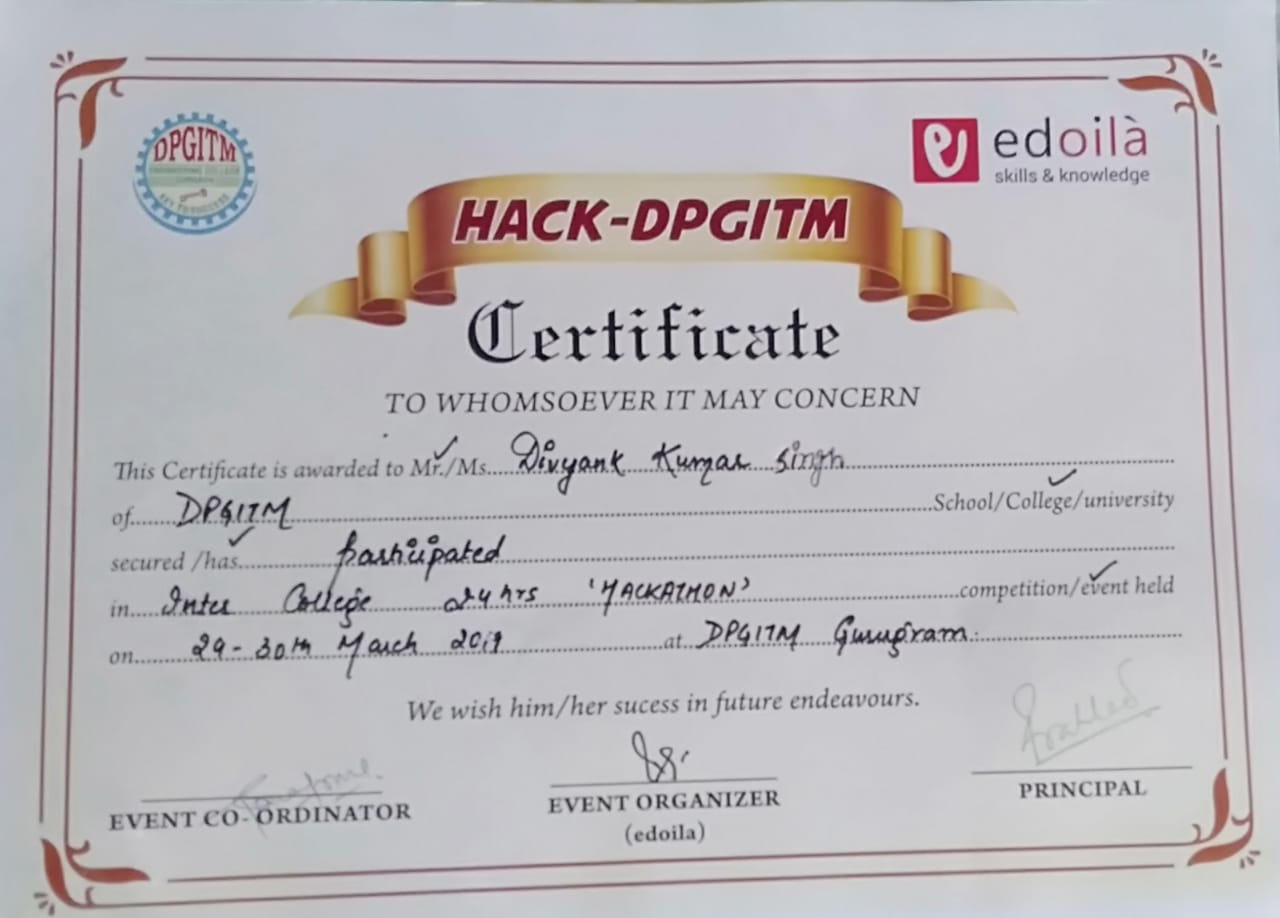 DPGITM
ENGINEERING COLLEGE
KEY TO SUCCESS
edoilà
skills & knowledge
HACK-DPGITM
Certificate
TO WHOMSOEVER IT MAY CONCERN
This Certificate is awarded to Mr./Ms. Divyank Kumar Singh
of DPGITM School/College/university
secured /has participated
in Inter College 24 hrs 'HACKATHON' competition/event held
on 29-30th March 2019 at DPGITM Gurugram.
We wish him/her sucess in future endeavours.
EVENT CO-ORDINATOR
EVENT ORGANIZER
(edoila)
PRINCIPAL